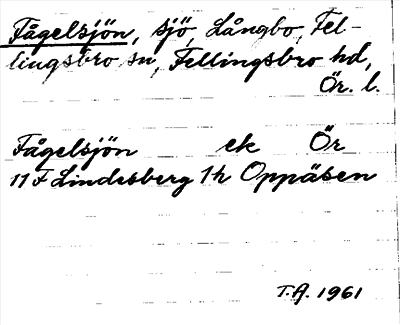 Fågelsjön, sjö, Långbo, Fel-
lingsbro sn, Fellingsbro hd,
Ör. l.
Fågelsjön ek Ör
11 F Lindesberg 1h Oppåsen
T.A. 1961